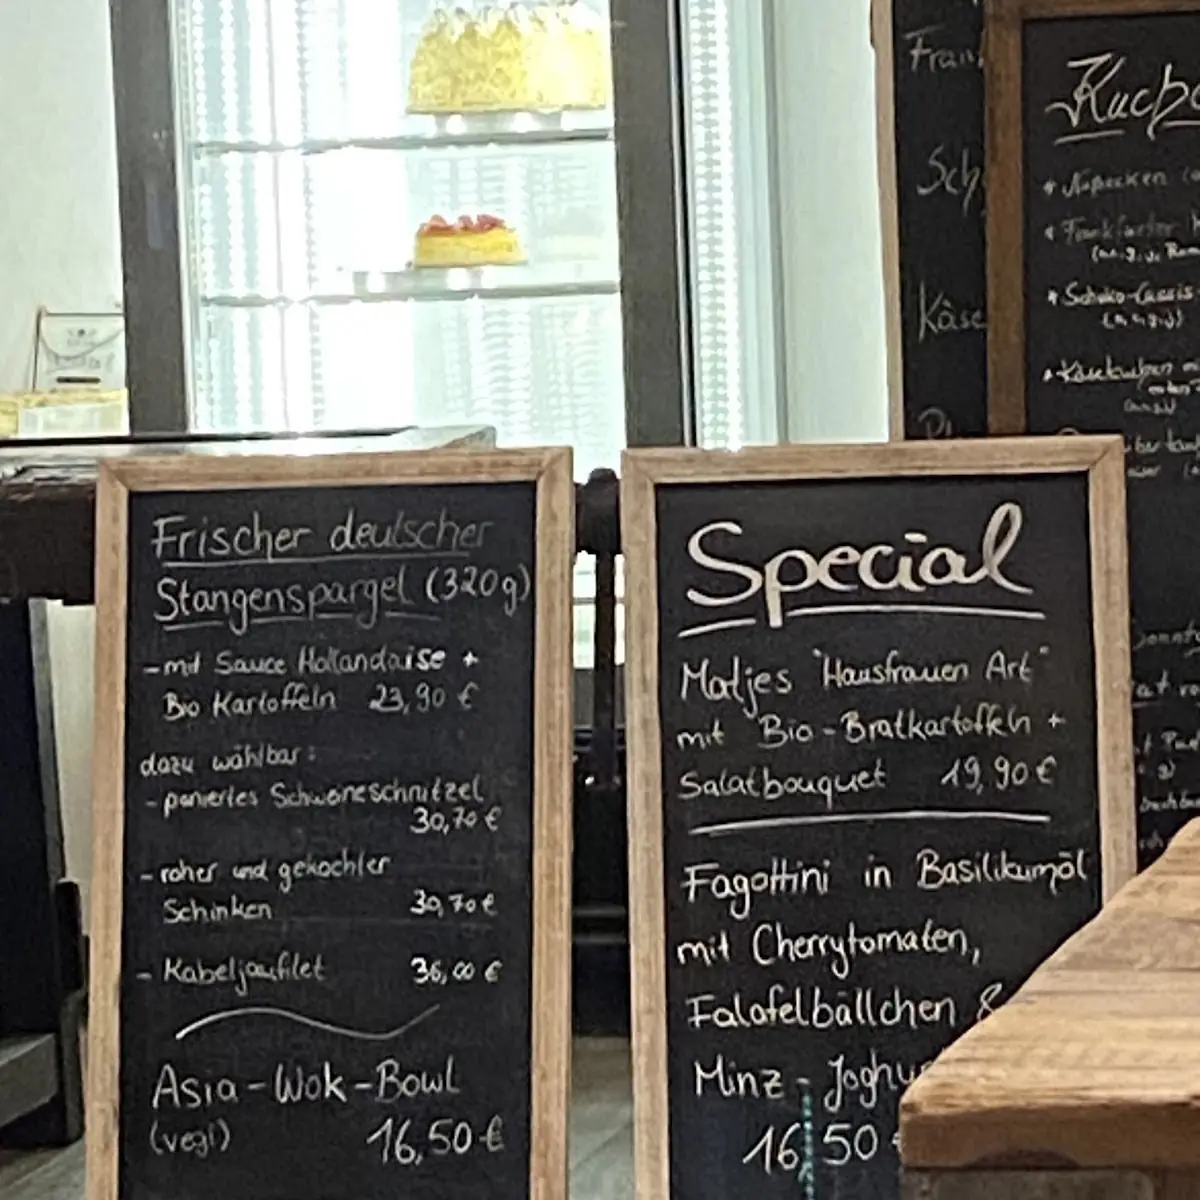 Frischer deutscher
Stangenspargel (320g)
- mit Sauce Hollandaise +
Bio Kartoffeln 23,90 €
dazu wählbar:
- paniertes Schweineschnitzel
30,70 €
- roher und gekochter
Schinken 30,70 €
- Kabeljaufilet 36,00 €
Asia-Wok-Bowl
(vegl) 16,50 €
Special
Matjes "Hausfrauen Art"
mit Bio-Bratkartoffeln +
Salatbouquet 19,90 €
Fagottini in Basilikumöl
mit Cherrytomaten,
Falafelbällchen &
Minz-Joghu
16,50 €
Fran
Sch
Käse
Kuch
* Nußecken
* Frankfurter
* Schoko-Cassis
* Käsekuchen